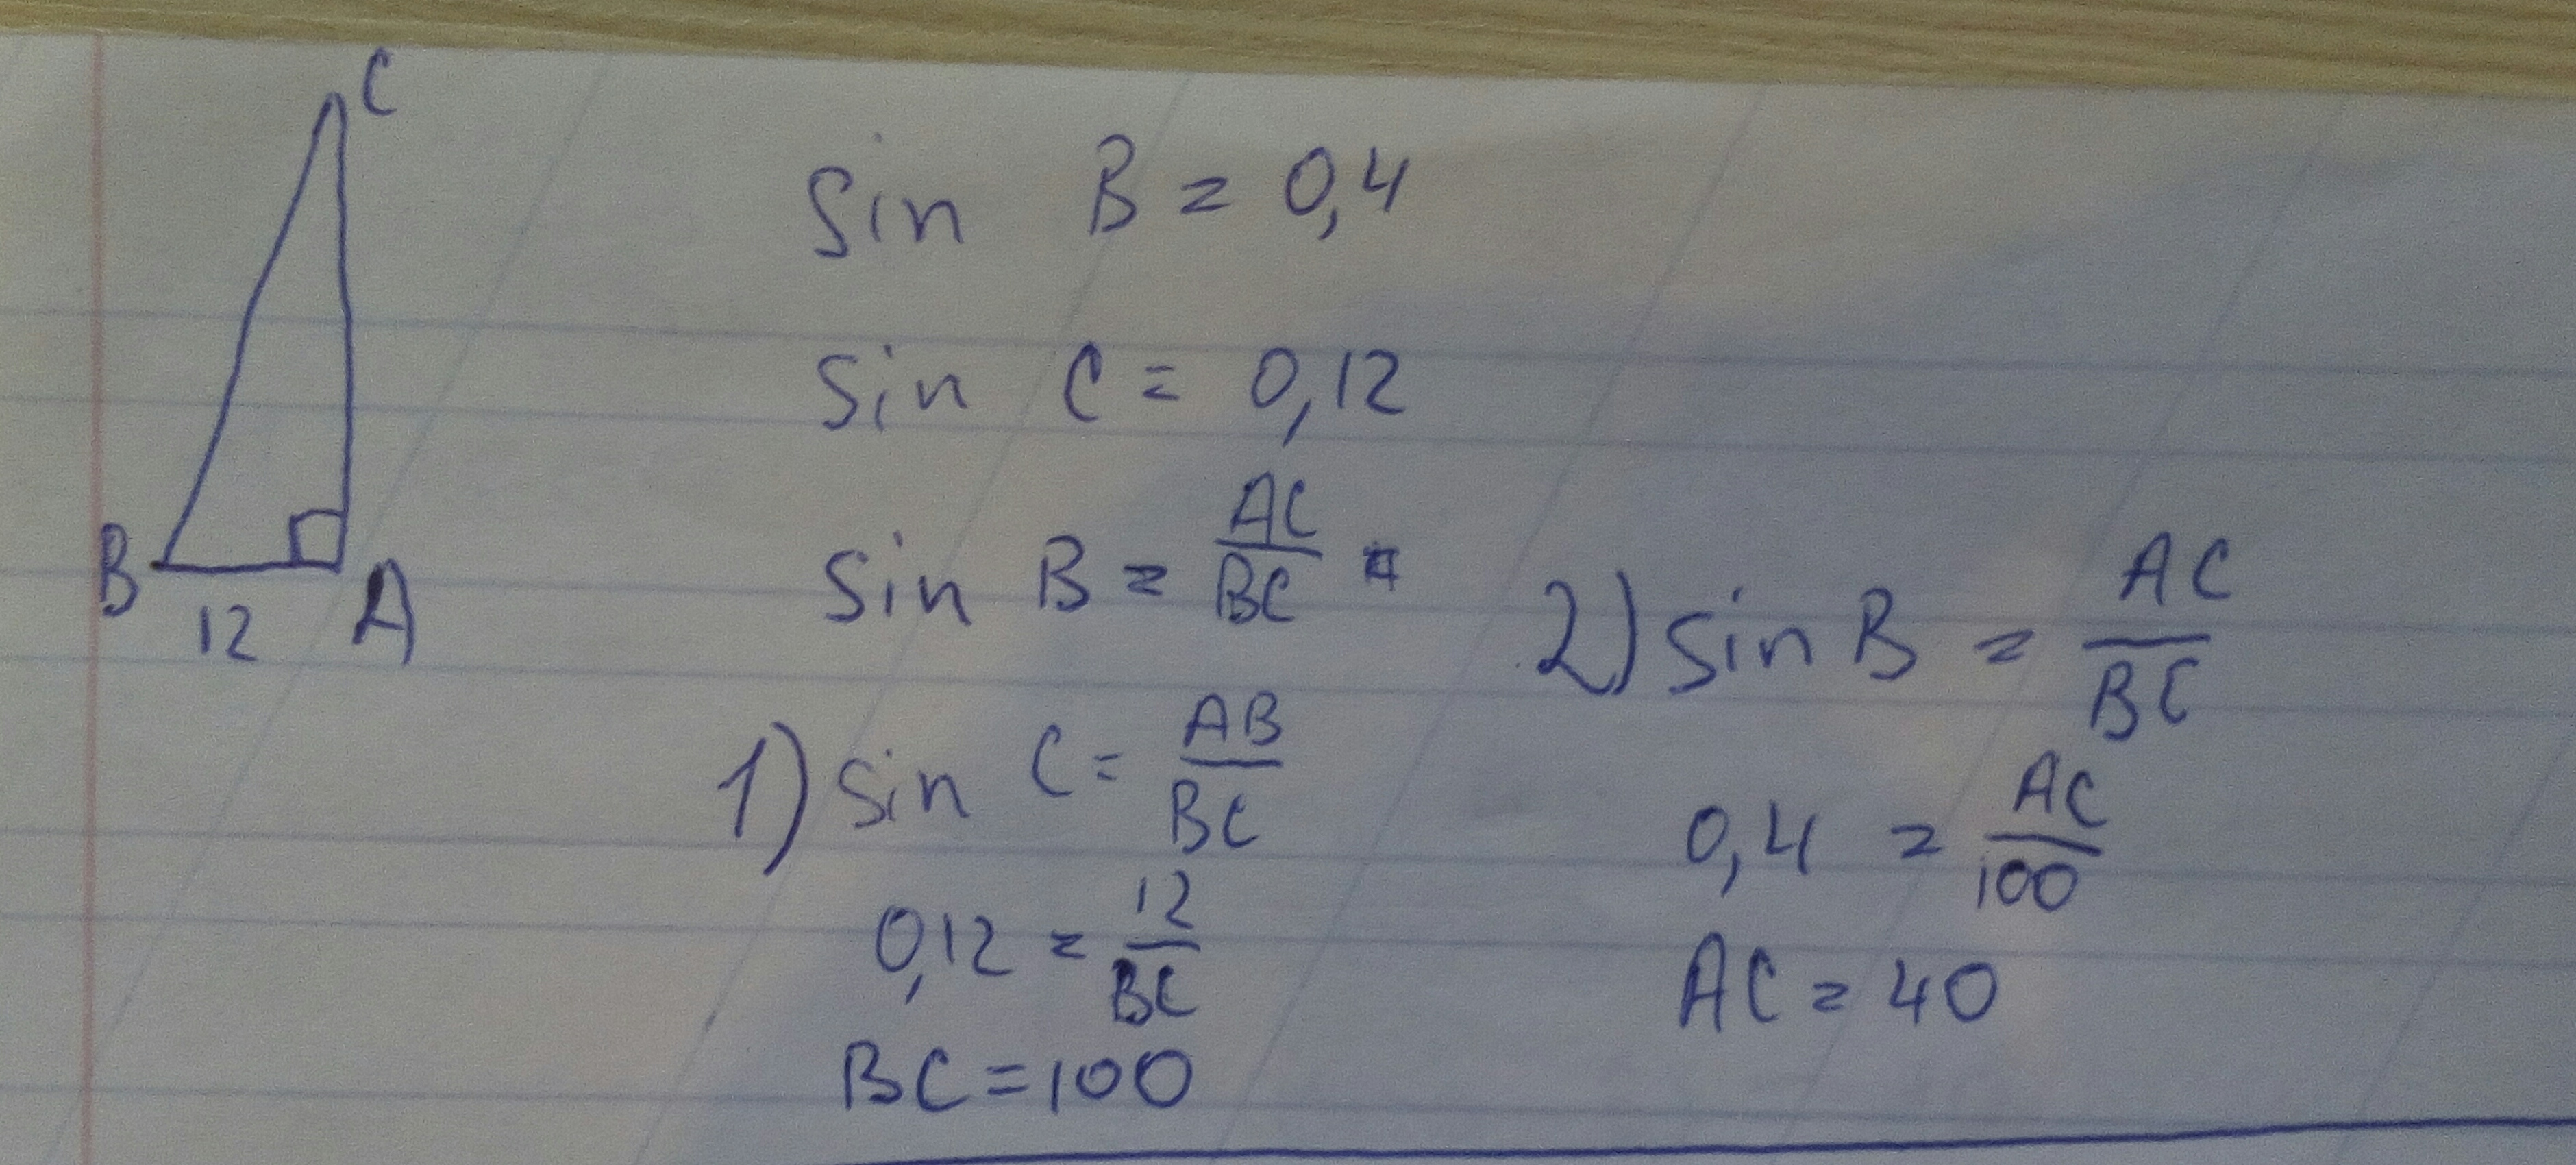 C
B
12
A
sin B = 0,4
sin C = 0,12
sin B = AC/BC =
1) sin C = AB/BC
0,12 = 12/BC
BC = 100
2) sin B = AC/BC
0,4 = AC/100
AC = 40